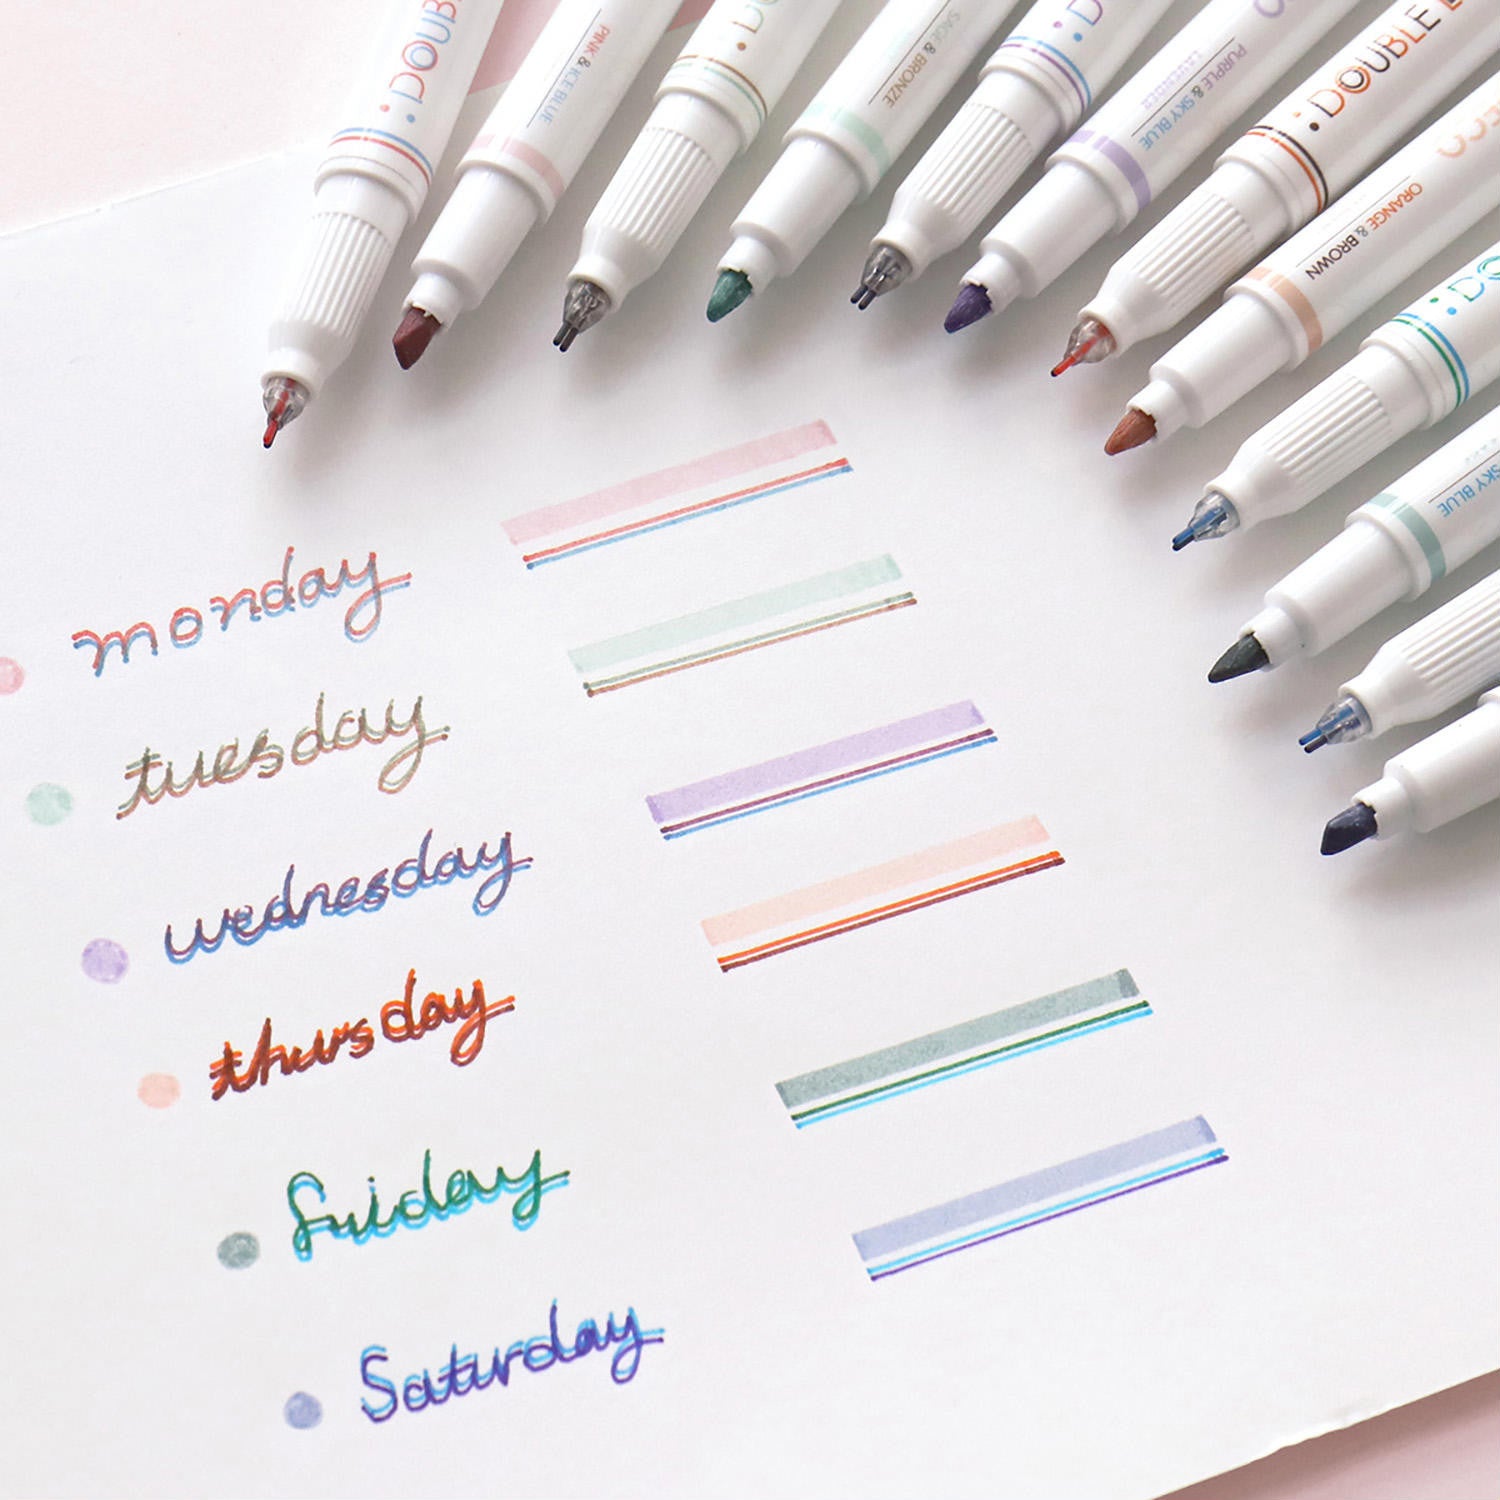 DOUBL
PINK & ICE BLUE
DO
SAGE & BRONZE
D
PURPLE & SKY BLUE
LAVENDER
DOUBLE L
ORANGE & BROWN
SKY BLUE
monday
tuesday
wednesday
thursday
friday
Saturday